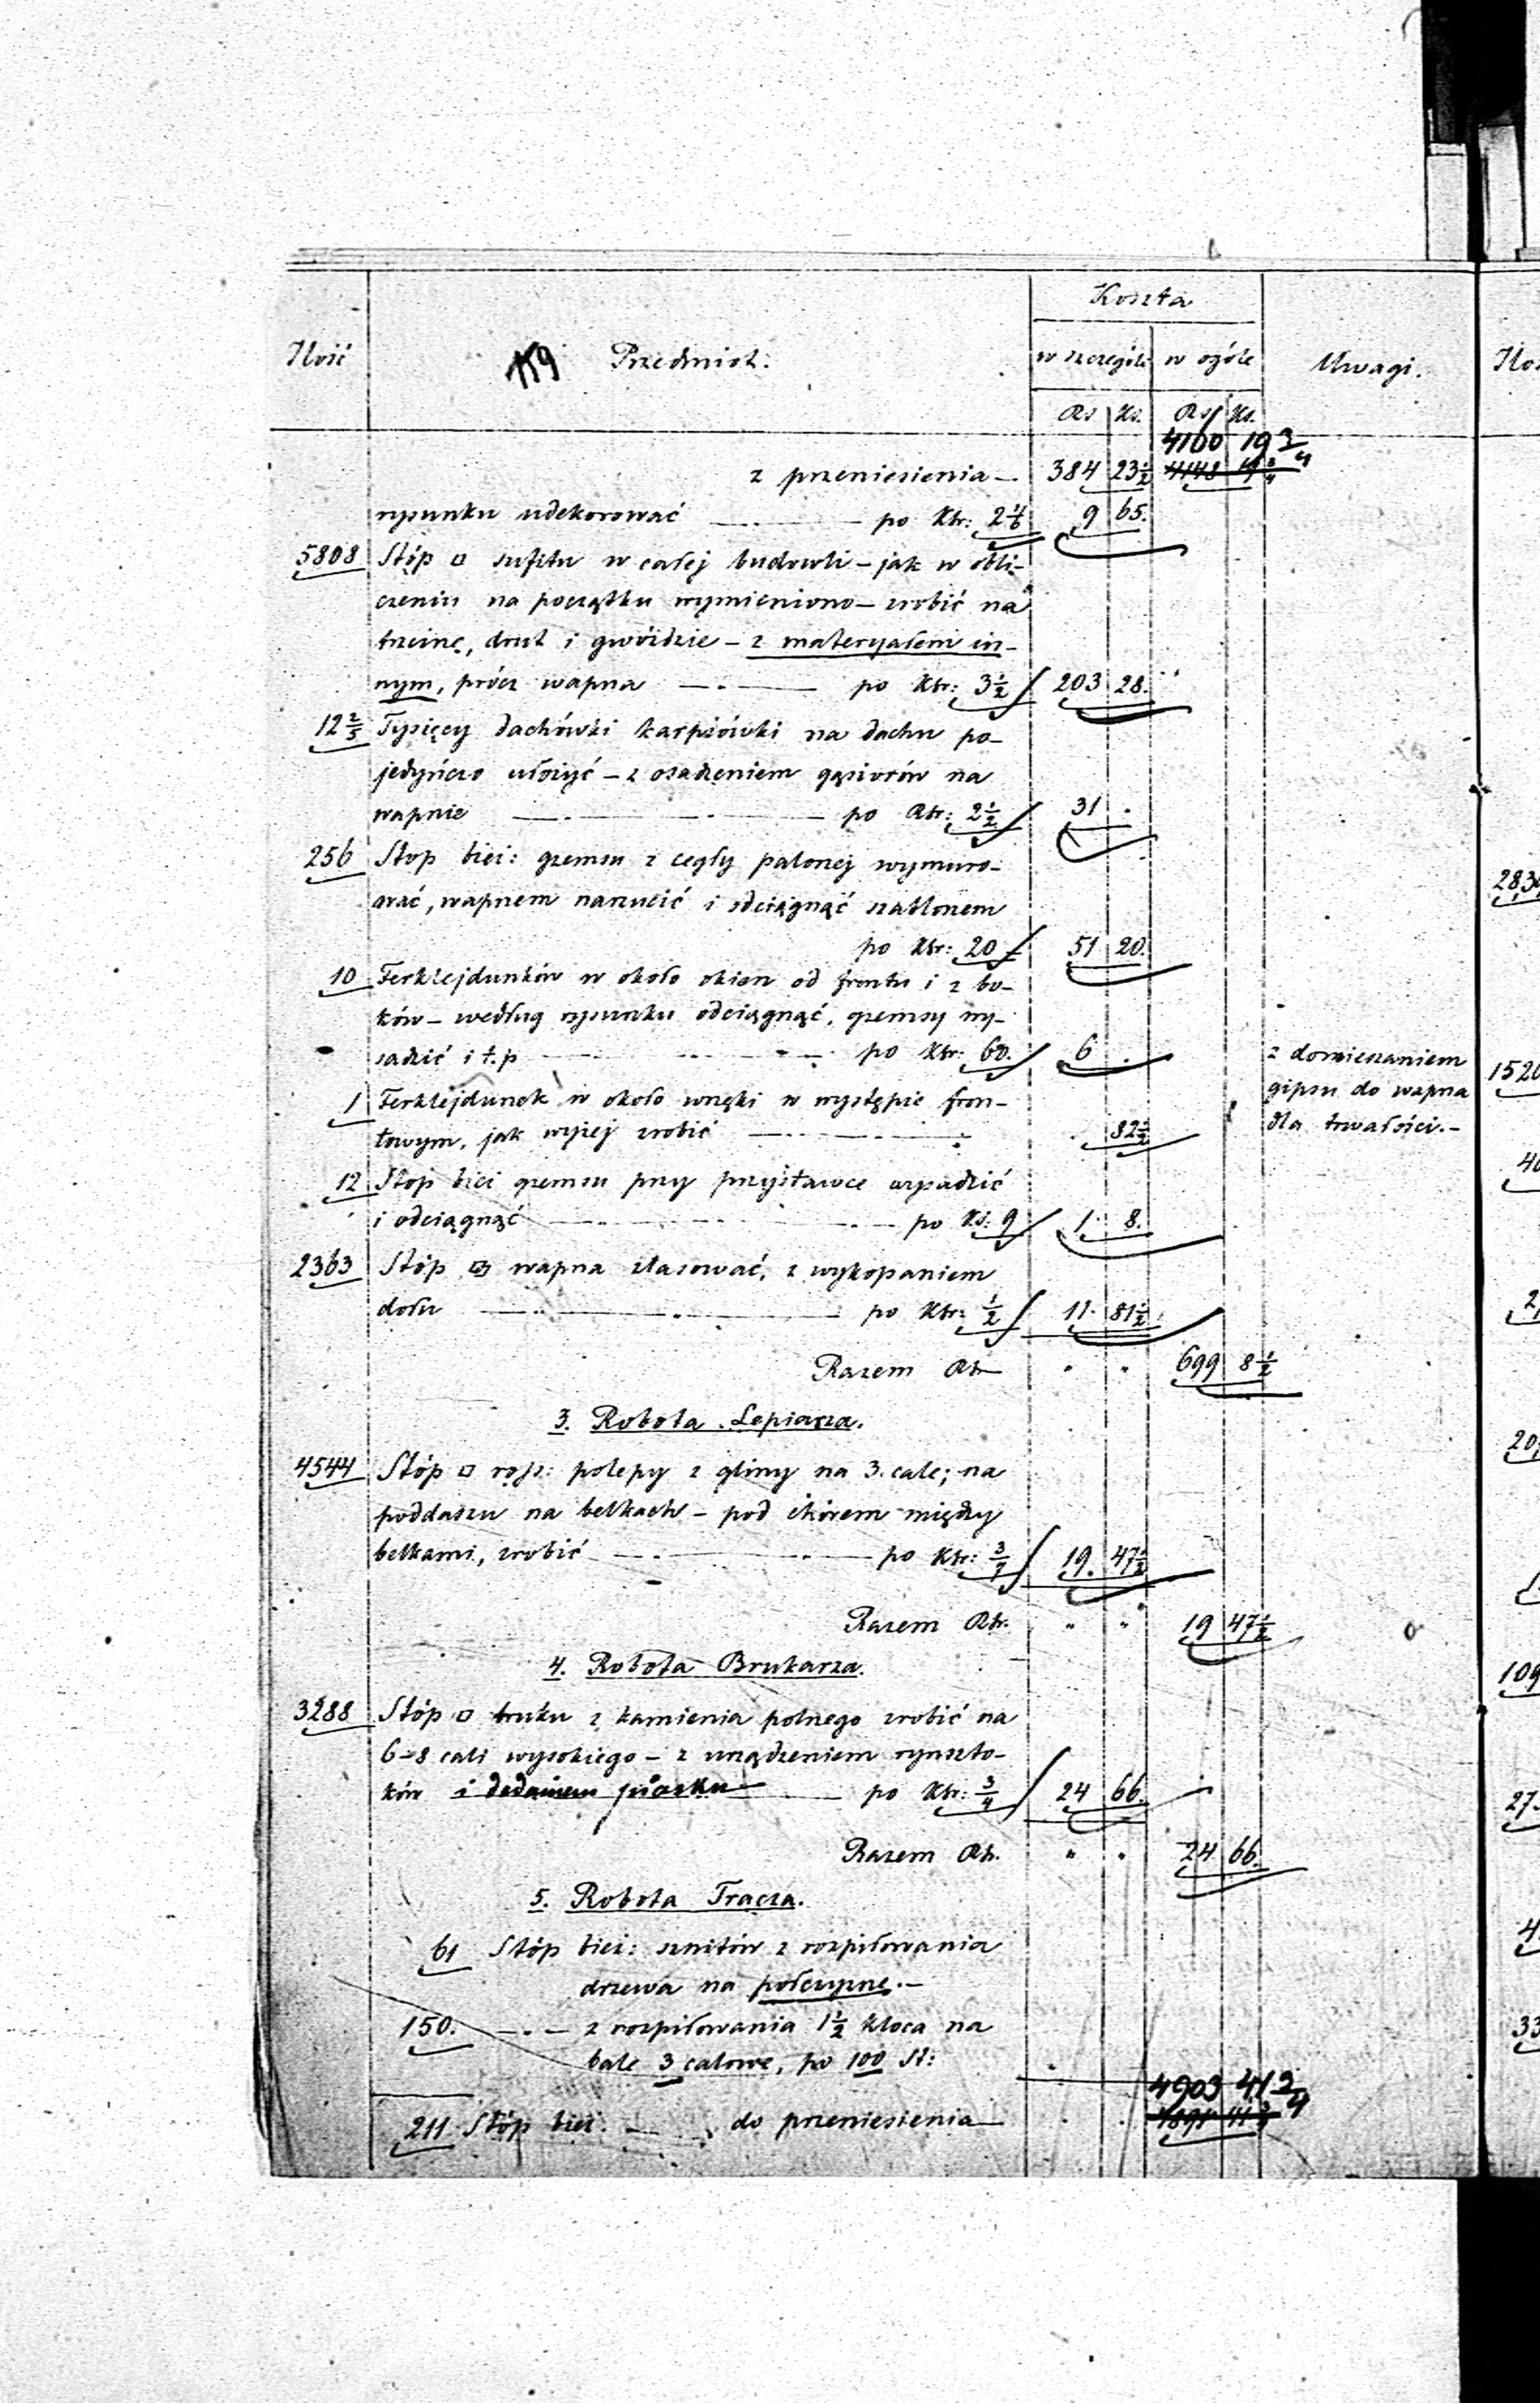 Koszta
Ilość 159 Przedmiot. w szczególe w ogóle Uwagi.
Rs Ks. Rs Ks.
4160 19 3/4
z przeniesienia — 384 23 1/2 4148 19 3/4
rysunku udekorować — po Ktr: 2 1/6 9 65.
5808 Stóp □ sufitu w całej budowli – jak w obli-
czeniu na początku wymieniono – zrobić na
trzcinę, drut i gwoździe – z materyałem in-
nym, prócz wapna — po Ktr: 3 1/2 203 28.
12 2/5 Tysięcy dachówki karpiówki na dachu po-
jedyńczo ułożyć – z osadzeniem gąsiorów na
wapnie — po Rtr: 2 1/2 31 .
256 Stop bież: gzemsu z cegły palonej wymuro-
wać, wapnem narzucić i odciągnąć szablonem
po Ktr: 20 51 20.
10 Ferklejdunków w około okien od frontu i z bo-
ków – według rysunku odciągnąć, gzemsy wy-
sadzić i t.p — po Ktr: 60. 6 . z domieszaniem
gipsu do wapna
1 Ferklejdunek w około wnęki w występie fron-
towym, jak wyżej zrobić — . 82 1/2 dla trwałości.–
12 Stóp bież gzemsu przy przystawce wysadzić
i odciągnąć — po Ks. 9 1. 8.
2363 Stóp wapna zlasować, z wykopaniem
dołu — po Ktr: 1/2 11. 81 1/2
Razem Rtr " " 699 8 1/2
3. Robota Lepiarza.
4544 Stóp □ rojz: polepy z gliny na 3. cale; na
poddaszu na belkach – pod chórem między
belkami, zrobić — po Ktr: 3/7 19. 47 1/2
Razem Rtr. " " 19 47 1/2
4. Robota Brukarza.
3288 Stóp □ bruku z kamienia polnego zrobić na
6–8 cali wysokiego – z urządzeniem rynszto-
ków i dodaniem piasku po Ktr: 3/4 24 66.
Razem Rtr. " " 24 66.
5. Robota Tracza.
61 Stóp bież: sznitów z rozpiłowania
drzewa na połczyzne.–
150. —„— z rozpiłowania 1 1/2 kloca na
bale 3 calowe, po 100 St:
4903 41 3/4
211 Stóp bież. — do przeniesienia — . . 4891 41 3/4